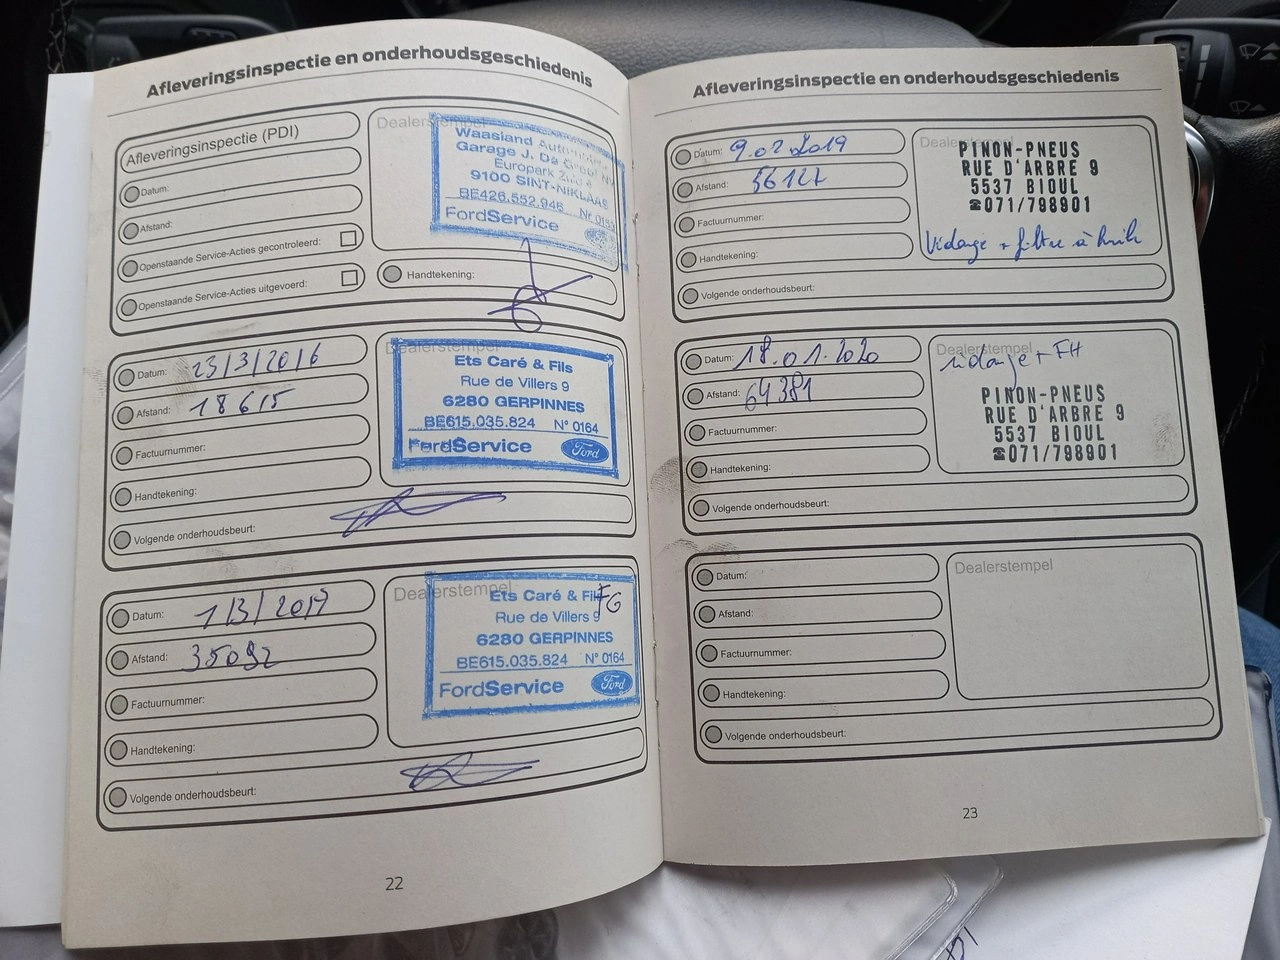 Afleveringsinspectie en onderhoudsgeschiedenis
Afleveringsinspectie (PDI)
Datum:
Afstand:
Openstaande Service-Acties gecontroleerd:
Openstaande Service-Acties uitgevoerd:
Dealerstempel
Waasland
Garage J. De
Europark
9100 SINT-NIKLAAS
BE426.552.946 Nr.
FordService
Handtekening:
Datum: 23/3/2016
Afstand: 18615
Factuurnummer:
Handtekening:
Volgende onderhoudsbeurt:
Dealerstempel
Ets Caré & Fils
Rue de Villers 9
6280 GERPINNES
BE615.035.824 N° 0164
FordService Ford
Datum: 1/3/2017
Afstand: 35092
Factuurnummer:
Handtekening:
Volgende onderhoudsbeurt:
Dealerstempel
Ets Caré & Fils FG
Rue de Villers 9
6280 GERPINNES
BE615.035.824 N° 0164
FordService Ford
22
Afleveringsinspectie en onderhoudsgeschiedenis
Datum: 9.02.2019
Afstand: 56127
Factuurnummer:
Handtekening:
Volgende onderhoudsbeurt:
Dealerstempel
PINON-PNEUS
RUE D'ARBRE 9
5537 BIOUL
☎071/798901
Vidange + filtre à huile
Datum: 18.01.2020
Afstand: 64381
Factuurnummer:
Handtekening:
Volgende onderhoudsbeurt:
Dealerstempel
vidange + FH
PINON-PNEUS
RUE D'ARBRE 9
5537 BIOUL
☎071/798901
Datum:
Afstand:
Factuurnummer:
Handtekening:
Volgende onderhoudsbeurt:
Dealerstempel
23